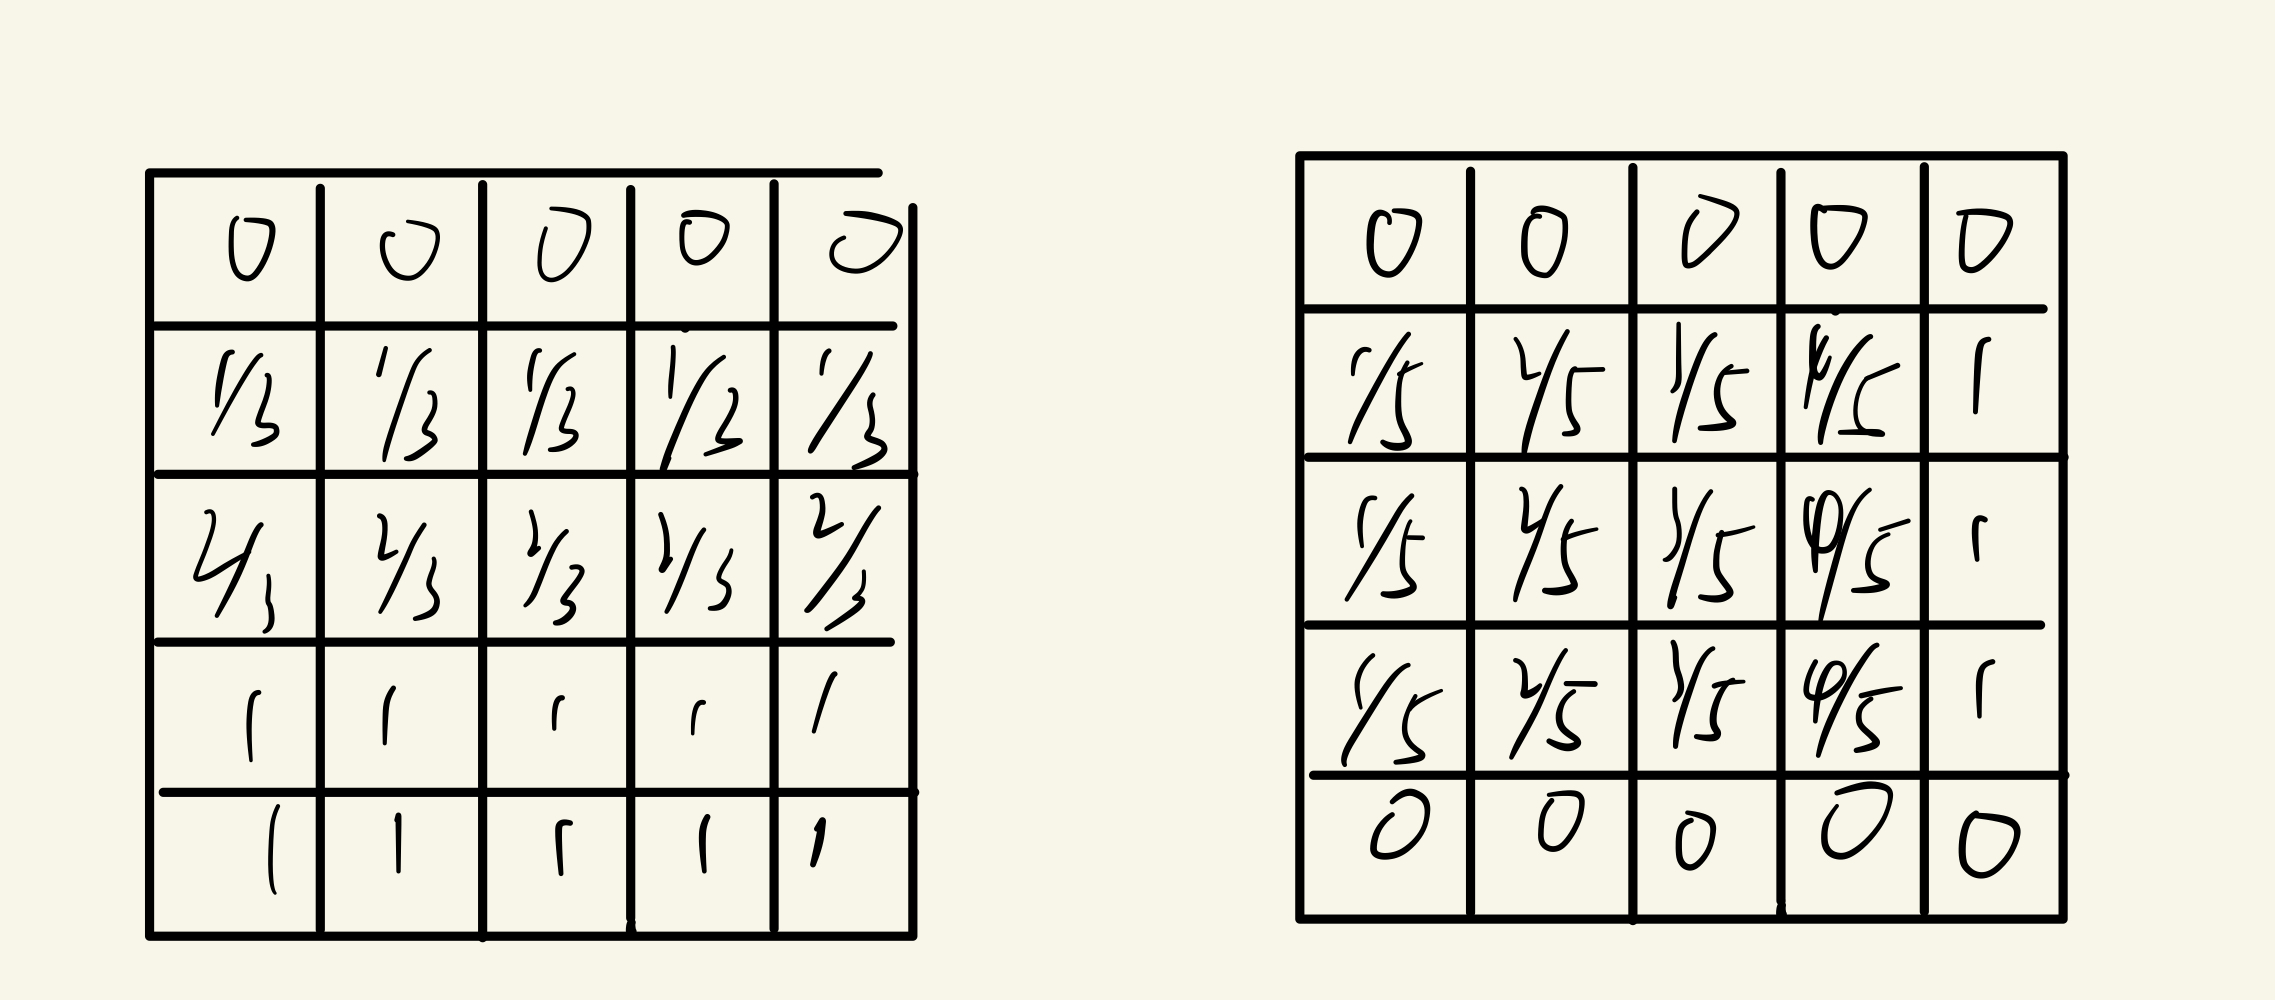 0 0 0 0 0
1/3 1/3 1/3 1/3 1/3
2/3 2/3 2/3 2/3 2/3
1 1 1 1 1
1 1 1 1 1
0 0 0 0 0
1/5 2/5 /5 4/5 1
1/5 2/5 /5 4/5 1
1/5 2/5 /5 4/5 1
0 0 0 0 0